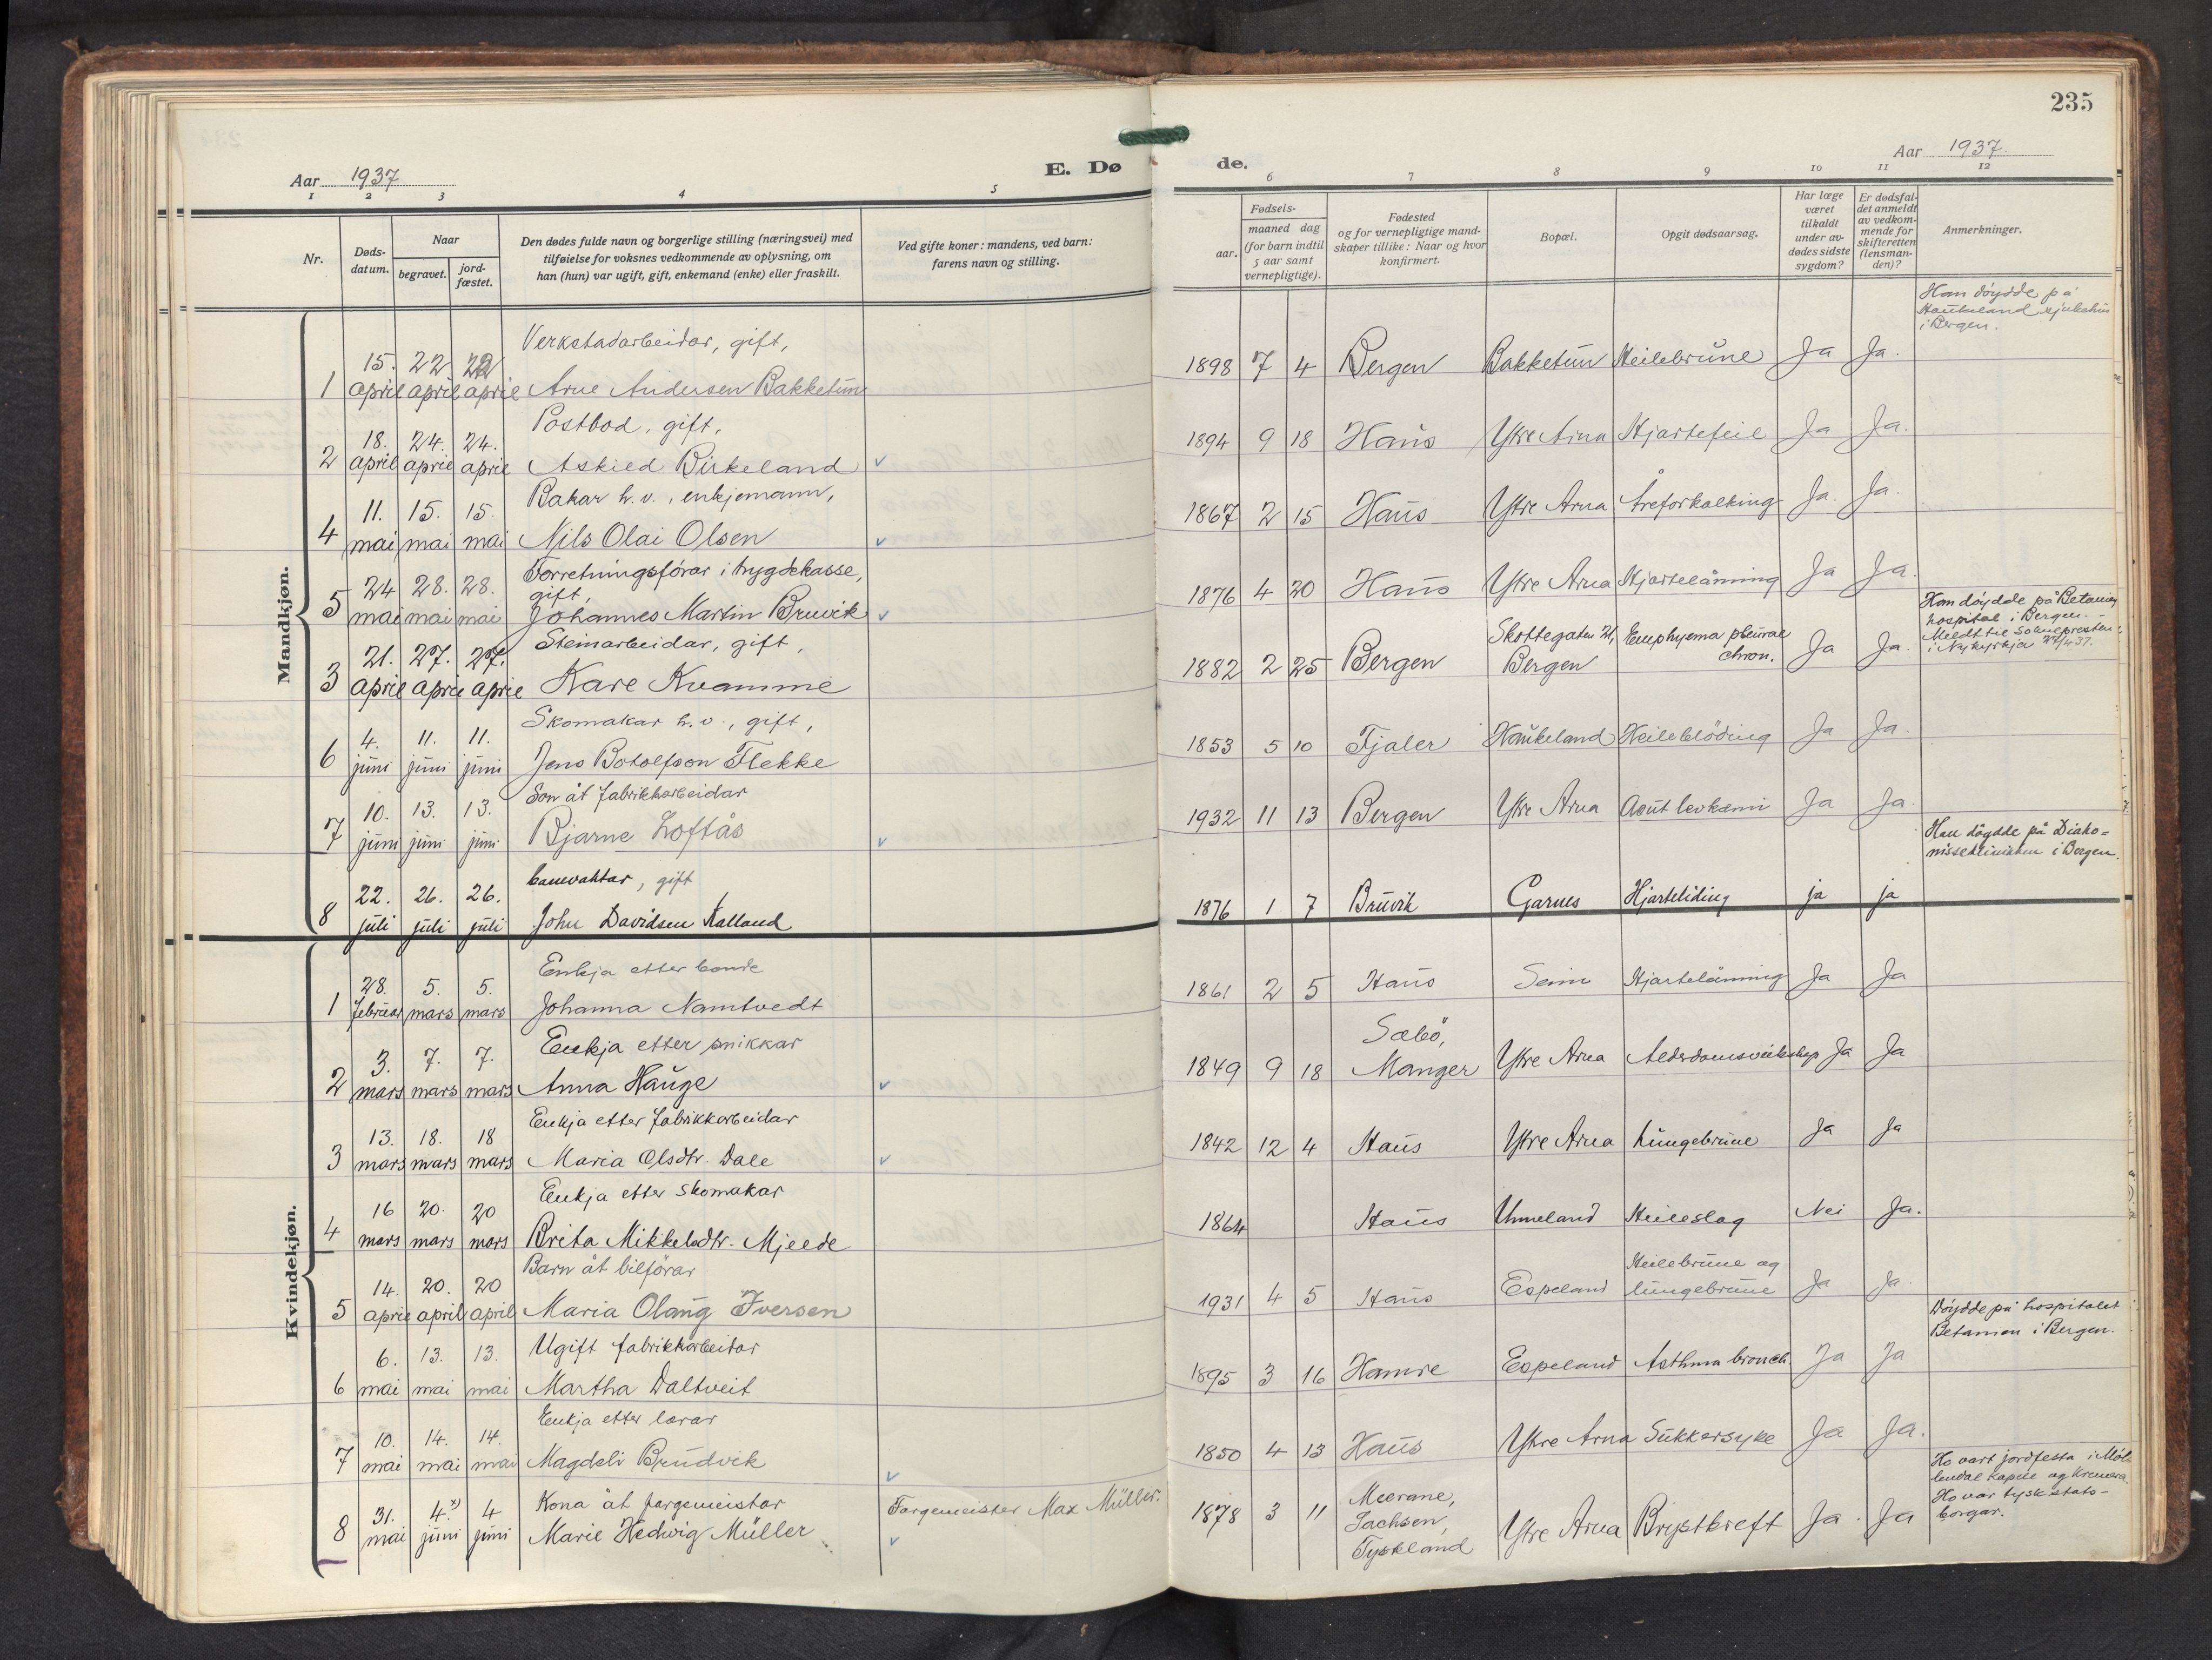 235
Aar 1937
E. Dø
de.
Aar 1937.
1 2 3 4 5
6 7 8 9 10 11 12
Nr.
Døds-
datum.
Naar
begravet.
jord-
fæstet.
Den dødes fulde navn og borgerlige stilling (næringsvei) med
tilføielse for voksnes vedkommende av oplysning, om
han (hun) var ugift, gift, enkemand (enke) eller fraskilt.
Ved gifte koner: mandens, ved barn:
farens navn og stilling.
Fødsels-
aar.
maaned dag
(for barn indtil
5 aar samt
vernepligtige).
Fødested
og for vernepligtige mand-
skaper tillike: Naar og hvor
konfirmert.
Bopæl.
Opgit dødsaarsag.
Har læge
været
tilkaldt
under av-
dødes sidste
sygdom?
Er dødsfal-
det anmeldt
av vedkom-
mende for
skifteretten
(lensman-
den)?
Anmerkninger.
Mandkjøn.
Verkstadarbeidar, gift,
15. 22. 22
1 april april april Arne Andersen Bakketun
1898 7 4 Bergen Bakketun Heilebrune Ja Ja.
Han döydde på
Haukeland sjukehus
i Bergen.
Postbod, gift,
18. 24. 24.
2 april april april Askild Birkeland
1894 9 18 Haus Ytre Arna Hjartefeil Ja Ja.
Bakar h.v., enkjemann,
11. 15. 15.
4 mai mai mai Nils Olai Olsen
1867 2 15 Haus Ytre Arna Åreforkalking Ja. Ja.
Forretningsförar i trygdekasse,
24 28. 28. gift,
5 mai mai mai Johannes Martin Bruvik
1876 4 20 Haus Ytre Arna Hjartelämning Ja Ja.
Steinarbeidar, gift,
21. 27. 27.
3 april april april Kare Kvamme
1882 2 25 Bergen Skottegaten 21, Bergen Emphyema pleurae
chron. Ja Ja.
Han döydde på Betanien
hospital i Bergen.
Meldt til Soknepresten
i Nykyrkja 27/4 37.
Skomakar h.v., gift,
4. 11. 11.
6 juni juni juni Jens Botolfson Flekke
1853 5 10 Fjaler Haukeland Heileblöding Ja Ja.
Son åt fabrikkarbeidar
10. 13. 13.
7 juni juni juni Bjarne Loftås
1932 11 13 Bergen Ytre Arna Acut levkämi Ja Ja.
Han döydde på Diako=
nisseklinikken i Bergen.
banevaktar, gift
22. 26. 26.
8 juli juli juli John Davidsen Kalland
1876 1 7 Bruvik Garnes Hjarteliding ja ja
Kvindekjøn.
Enkja etter bonde
28. 5. 5.
1 februar mars mars Johanna Namtvedt
1861 2 5 Haus Seim Hjartelämning Ja Ja
Enkja etter snikkar
3. 7. 7.
2 mars mars mars Anna Hauge
1849 9 18 Sæbö,
Manger Ytre Arna Alderdomsveikskap Ja Ja
Enkja etter fabrikkarbeidar
13. 18. 18
3 mars mars mars Maria Olsdtr. Dale
1842 12 4 Haus Ytre Arna Lungebrune Ja Ja
Enkja etter skomakar
16 20. 20
4 mars mars mars Brita Mikkelsdtr. Mjelde
1864 Haus Unneland Heileslag Nei Ja.
Barn åt bilförar
14. 20. 20
5 april april april Maria Olaug Iversen
1931 4 5 Haus Espeland Heilebrune og
lungebrune Ja Ja.
Ugift fabrikkarbeidar
6. 13. 13.
6 mai mai mai Martha Daltveit
1895 3 16 Hamre Espeland Asthma bronch. Ja Ja
Döydde på hospitalet
Betanien i Bergen.
Enkja etter lærar
10. 14. 14.
7 mai mai mai Magdeli Brudvik
1850 4 13 Haus Ytre Arna Sukkersyke Ja Ja.
Kona åt fargemeistar
31. 4.*) 4
8 mai juni juni Marie Hedwig Müller
Fargemeister Max Müller.
1878 3 11 Meerane,
Sachsen,
Tyskland Ytre Arna Brystkreft Ja. Ja
Ho vart jordfesta i Möl-
lendal kapell og kremera.
Ho var tysk stats-
borgar.